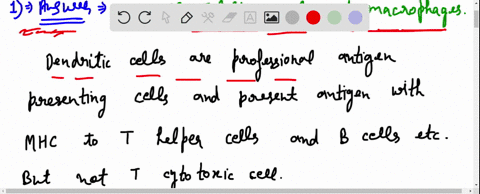 1) ⇒ Answer ⇒ macrophages.
Dendritic cells are professional antigen
presenting cells and present antigen with
MHC to T helper cells and B cells etc.
But not T cytotoxic cell.